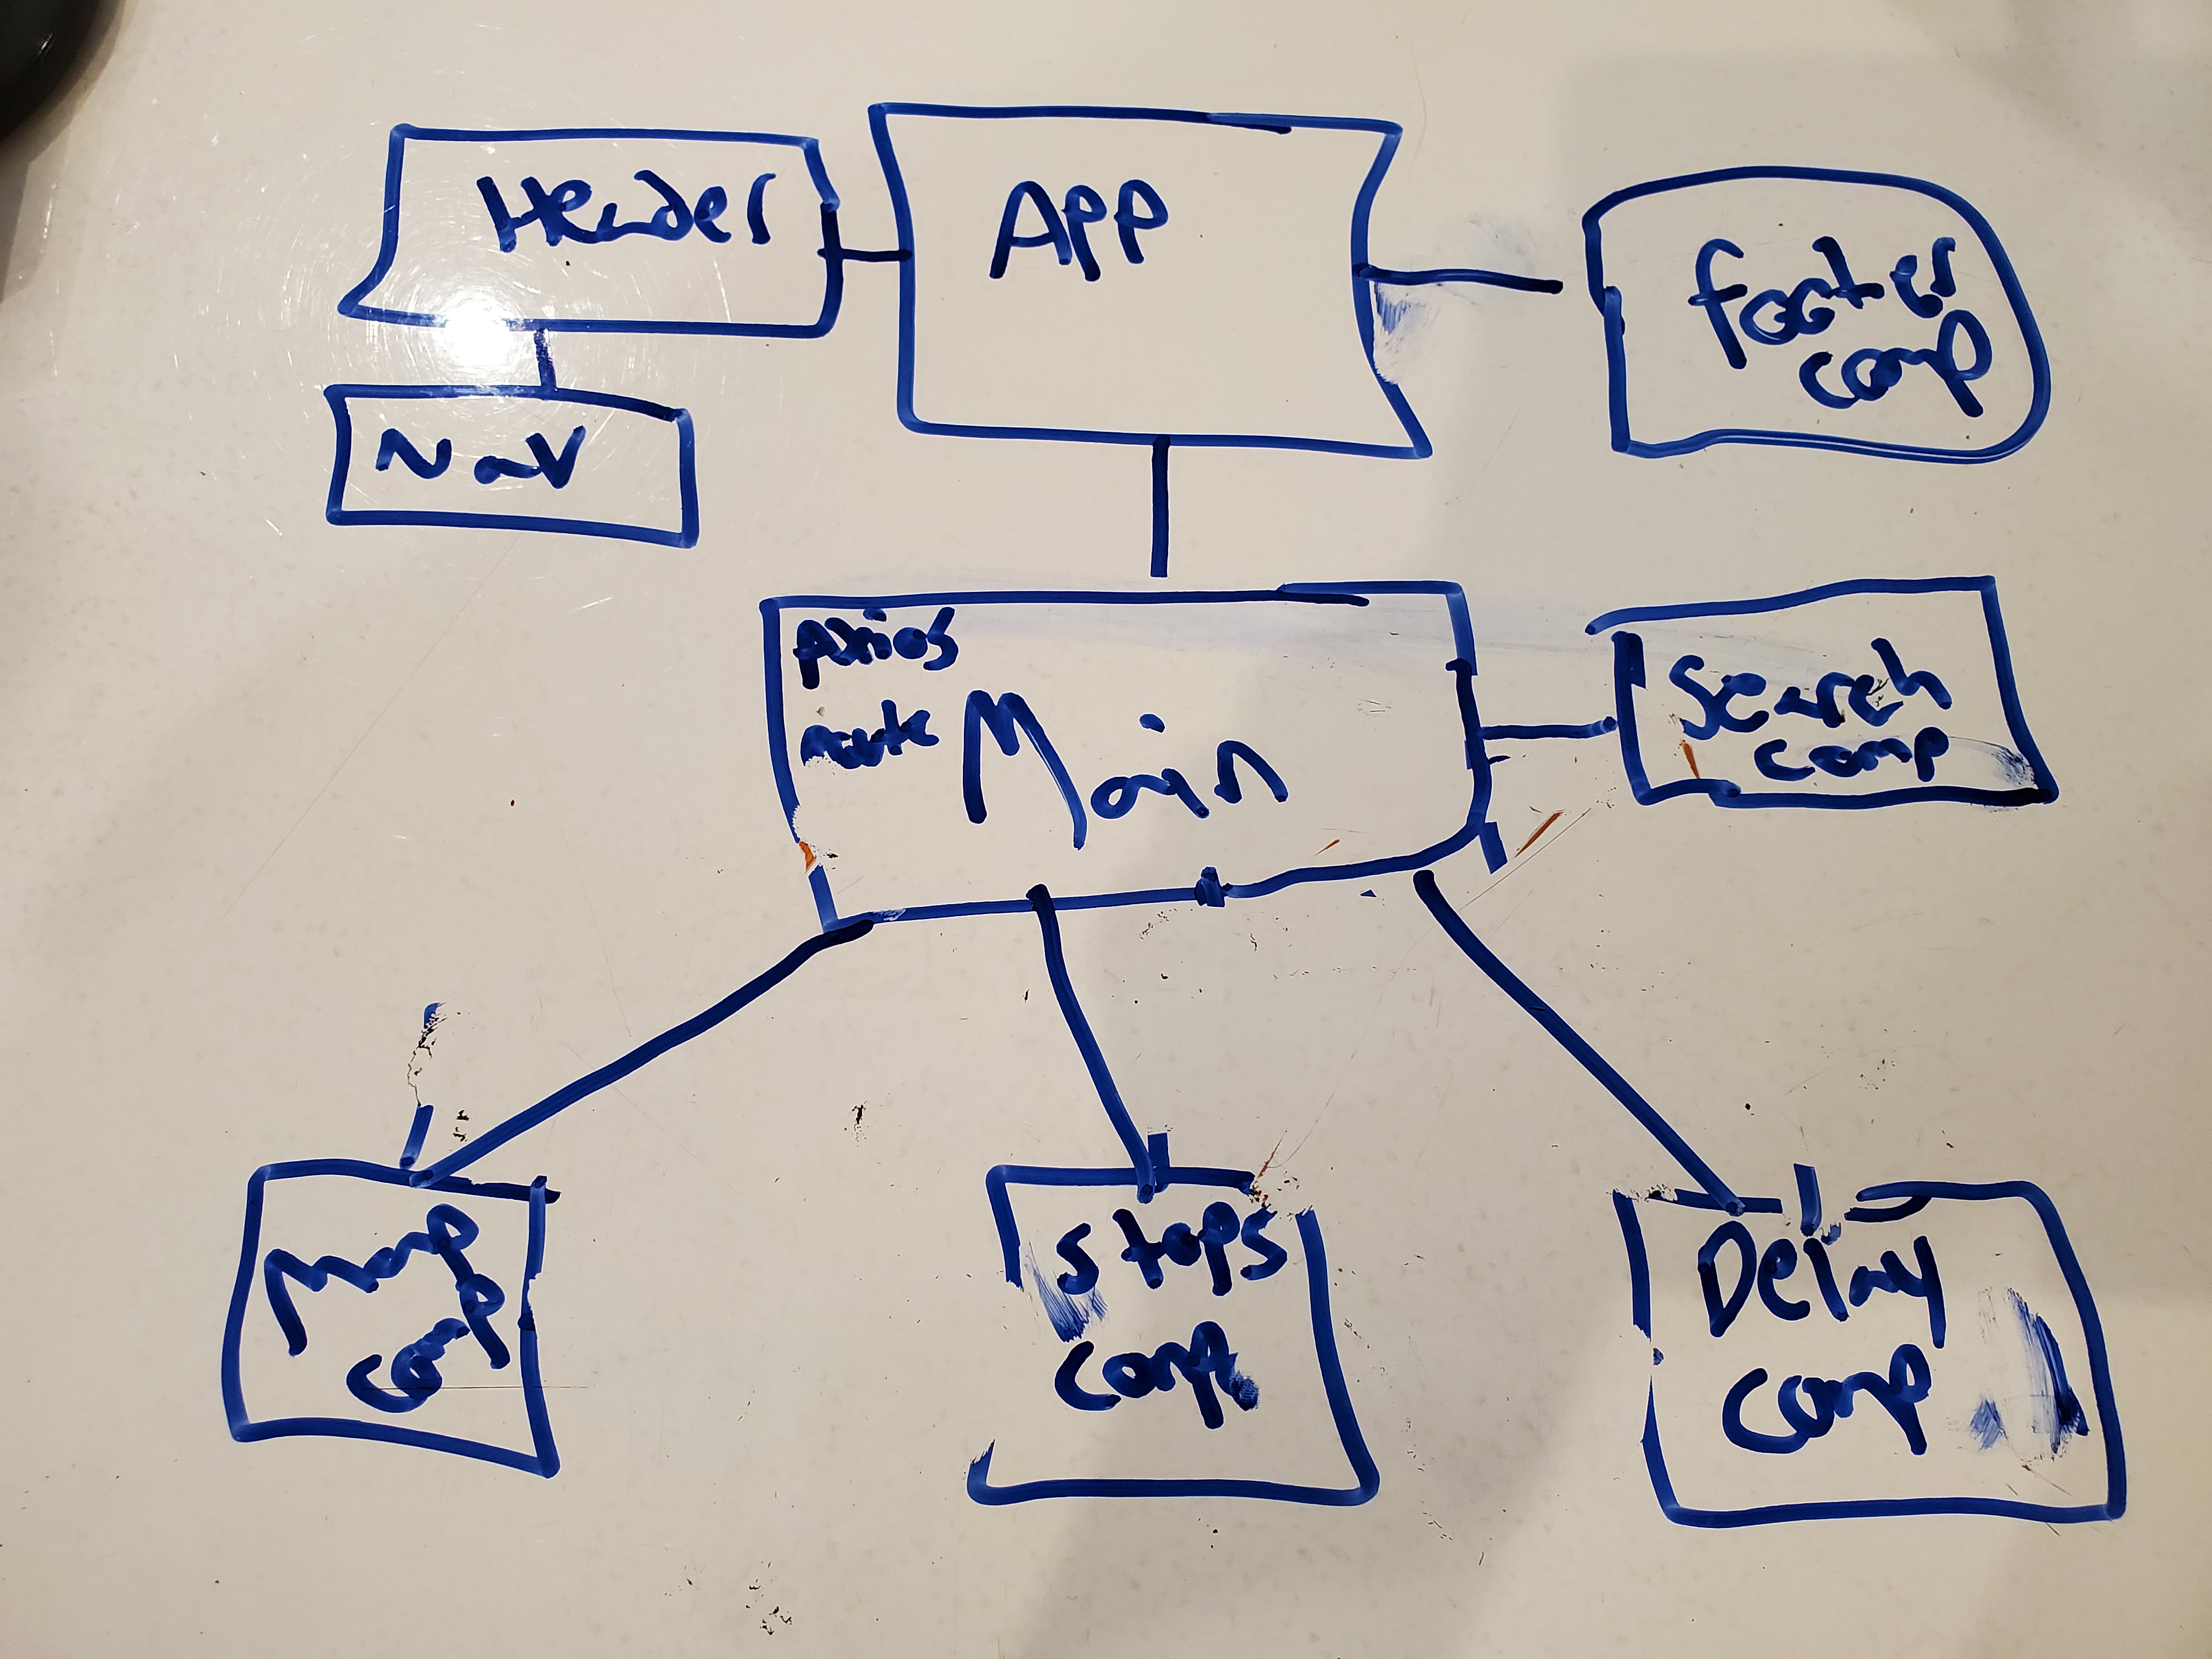 Header
App
footer
comp
Nav
Axios
route
Main
Search
comp
Map
comp
stops
comp
Delay
comp